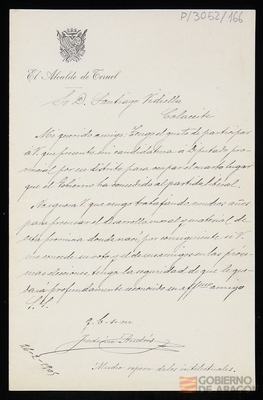 P/3052/166
El Alcalde de Teruel
Sr. D. Santiago Vidiella
Calaceite
Mi querido amigo: Tengo el gusto de participar
a V. que presento mi candidatura a Diputado pro-
vincial por ese distrito para ocupar el cuarto lugar
que el Gobierno ha concedido al partido liberal.
No ignora V. que vengo trabajando muchos años
para promover el desarrollo moral y material de
esta provincia donde nací por consiguiente si V.
me concede su voto y el de sus amigos en las próxi-
mas elecciones tenga la seguridad de que le que-
dará profundamente reconocido su affmo amigo
S.S.
q. b. s. m.
1905
GOBIERNO
DE ARAGON